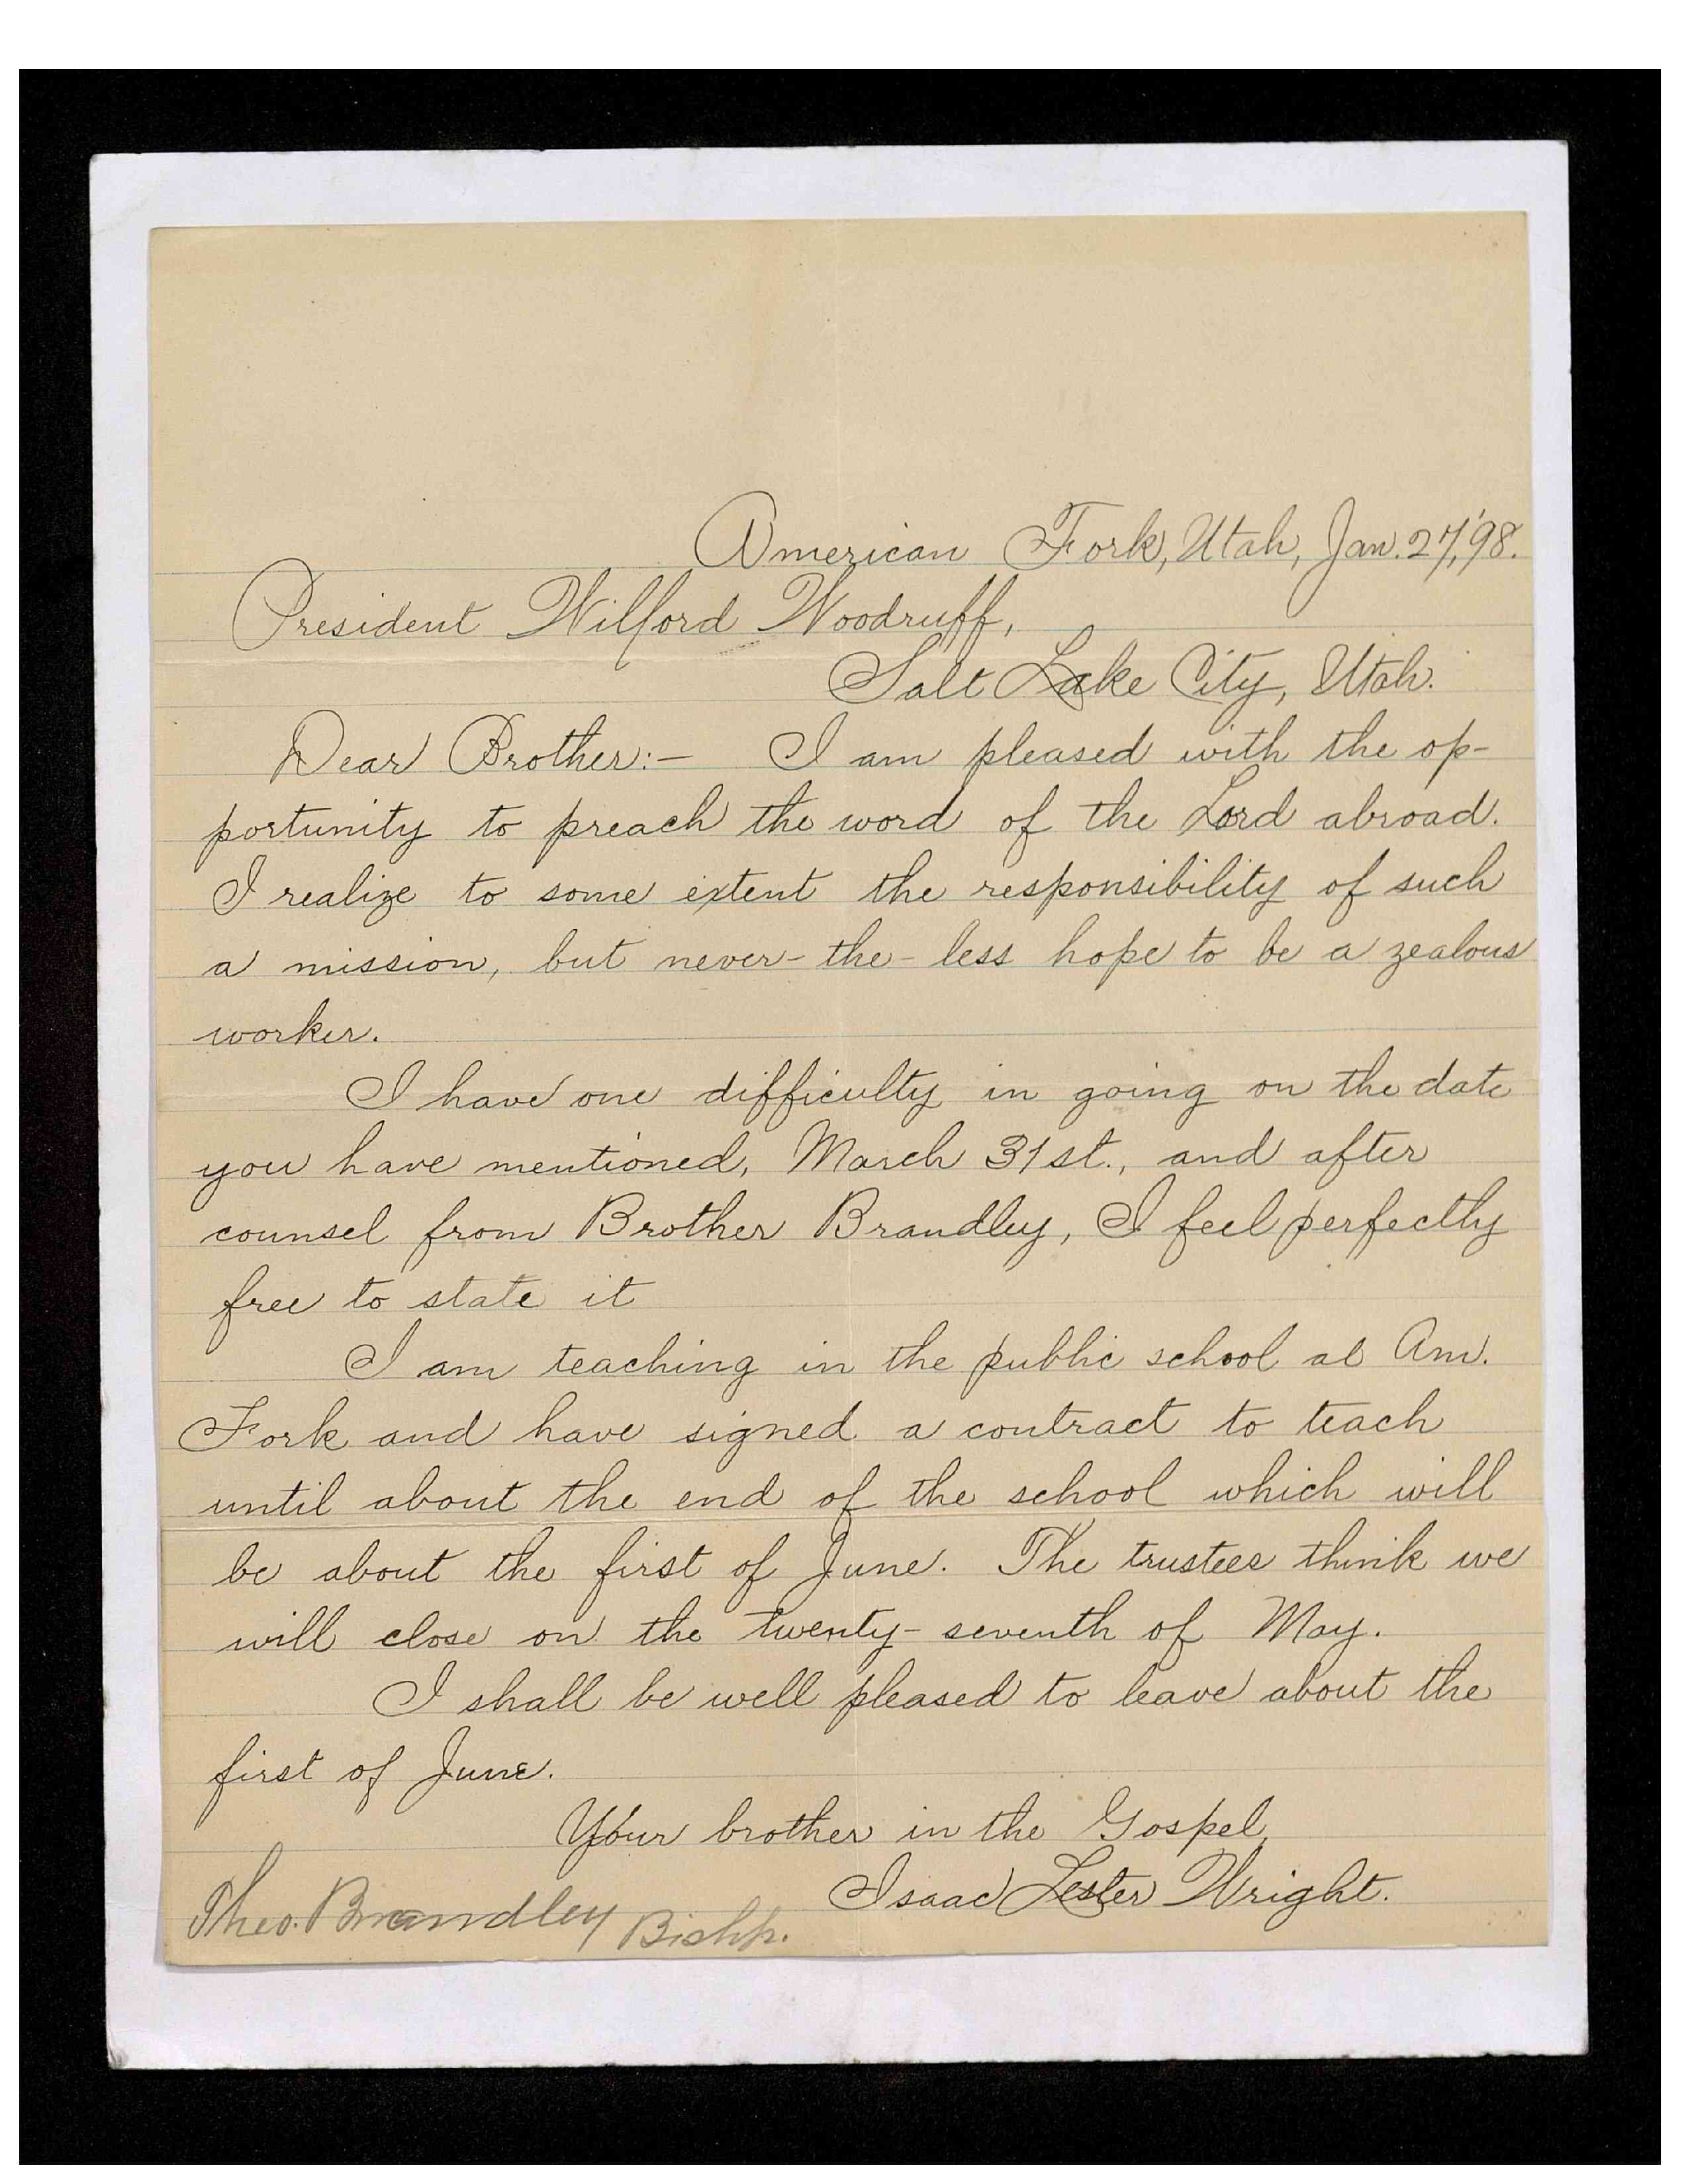 American Fork, Utah, Jan. 27, '98.
President Wilford Woodruff,
Salt Lake City, Utah.
Dear Brother:- I am pleased with the op-
portunity to preach the word of the Lord abroad.
I realize to some extent the responsibility of such
a mission, but never-the-less hope to be a zealous
worker.
I have one difficulty in going on the date
you have mentioned, March 31st., and after
counsel from Brother Brandley, I feel perfectly
free to state it
I am teaching in the public school at Am.
Fork and have signed a contract to teach
until about the end of the school which will
be about the first of June. The trustees think we
will close on the twenty-seventh of May.
I shall be well pleased to leave about the
first of June.
Your brother in the Gospel,
Isaac Lester Wright.
Theo. Brandley Bishp.